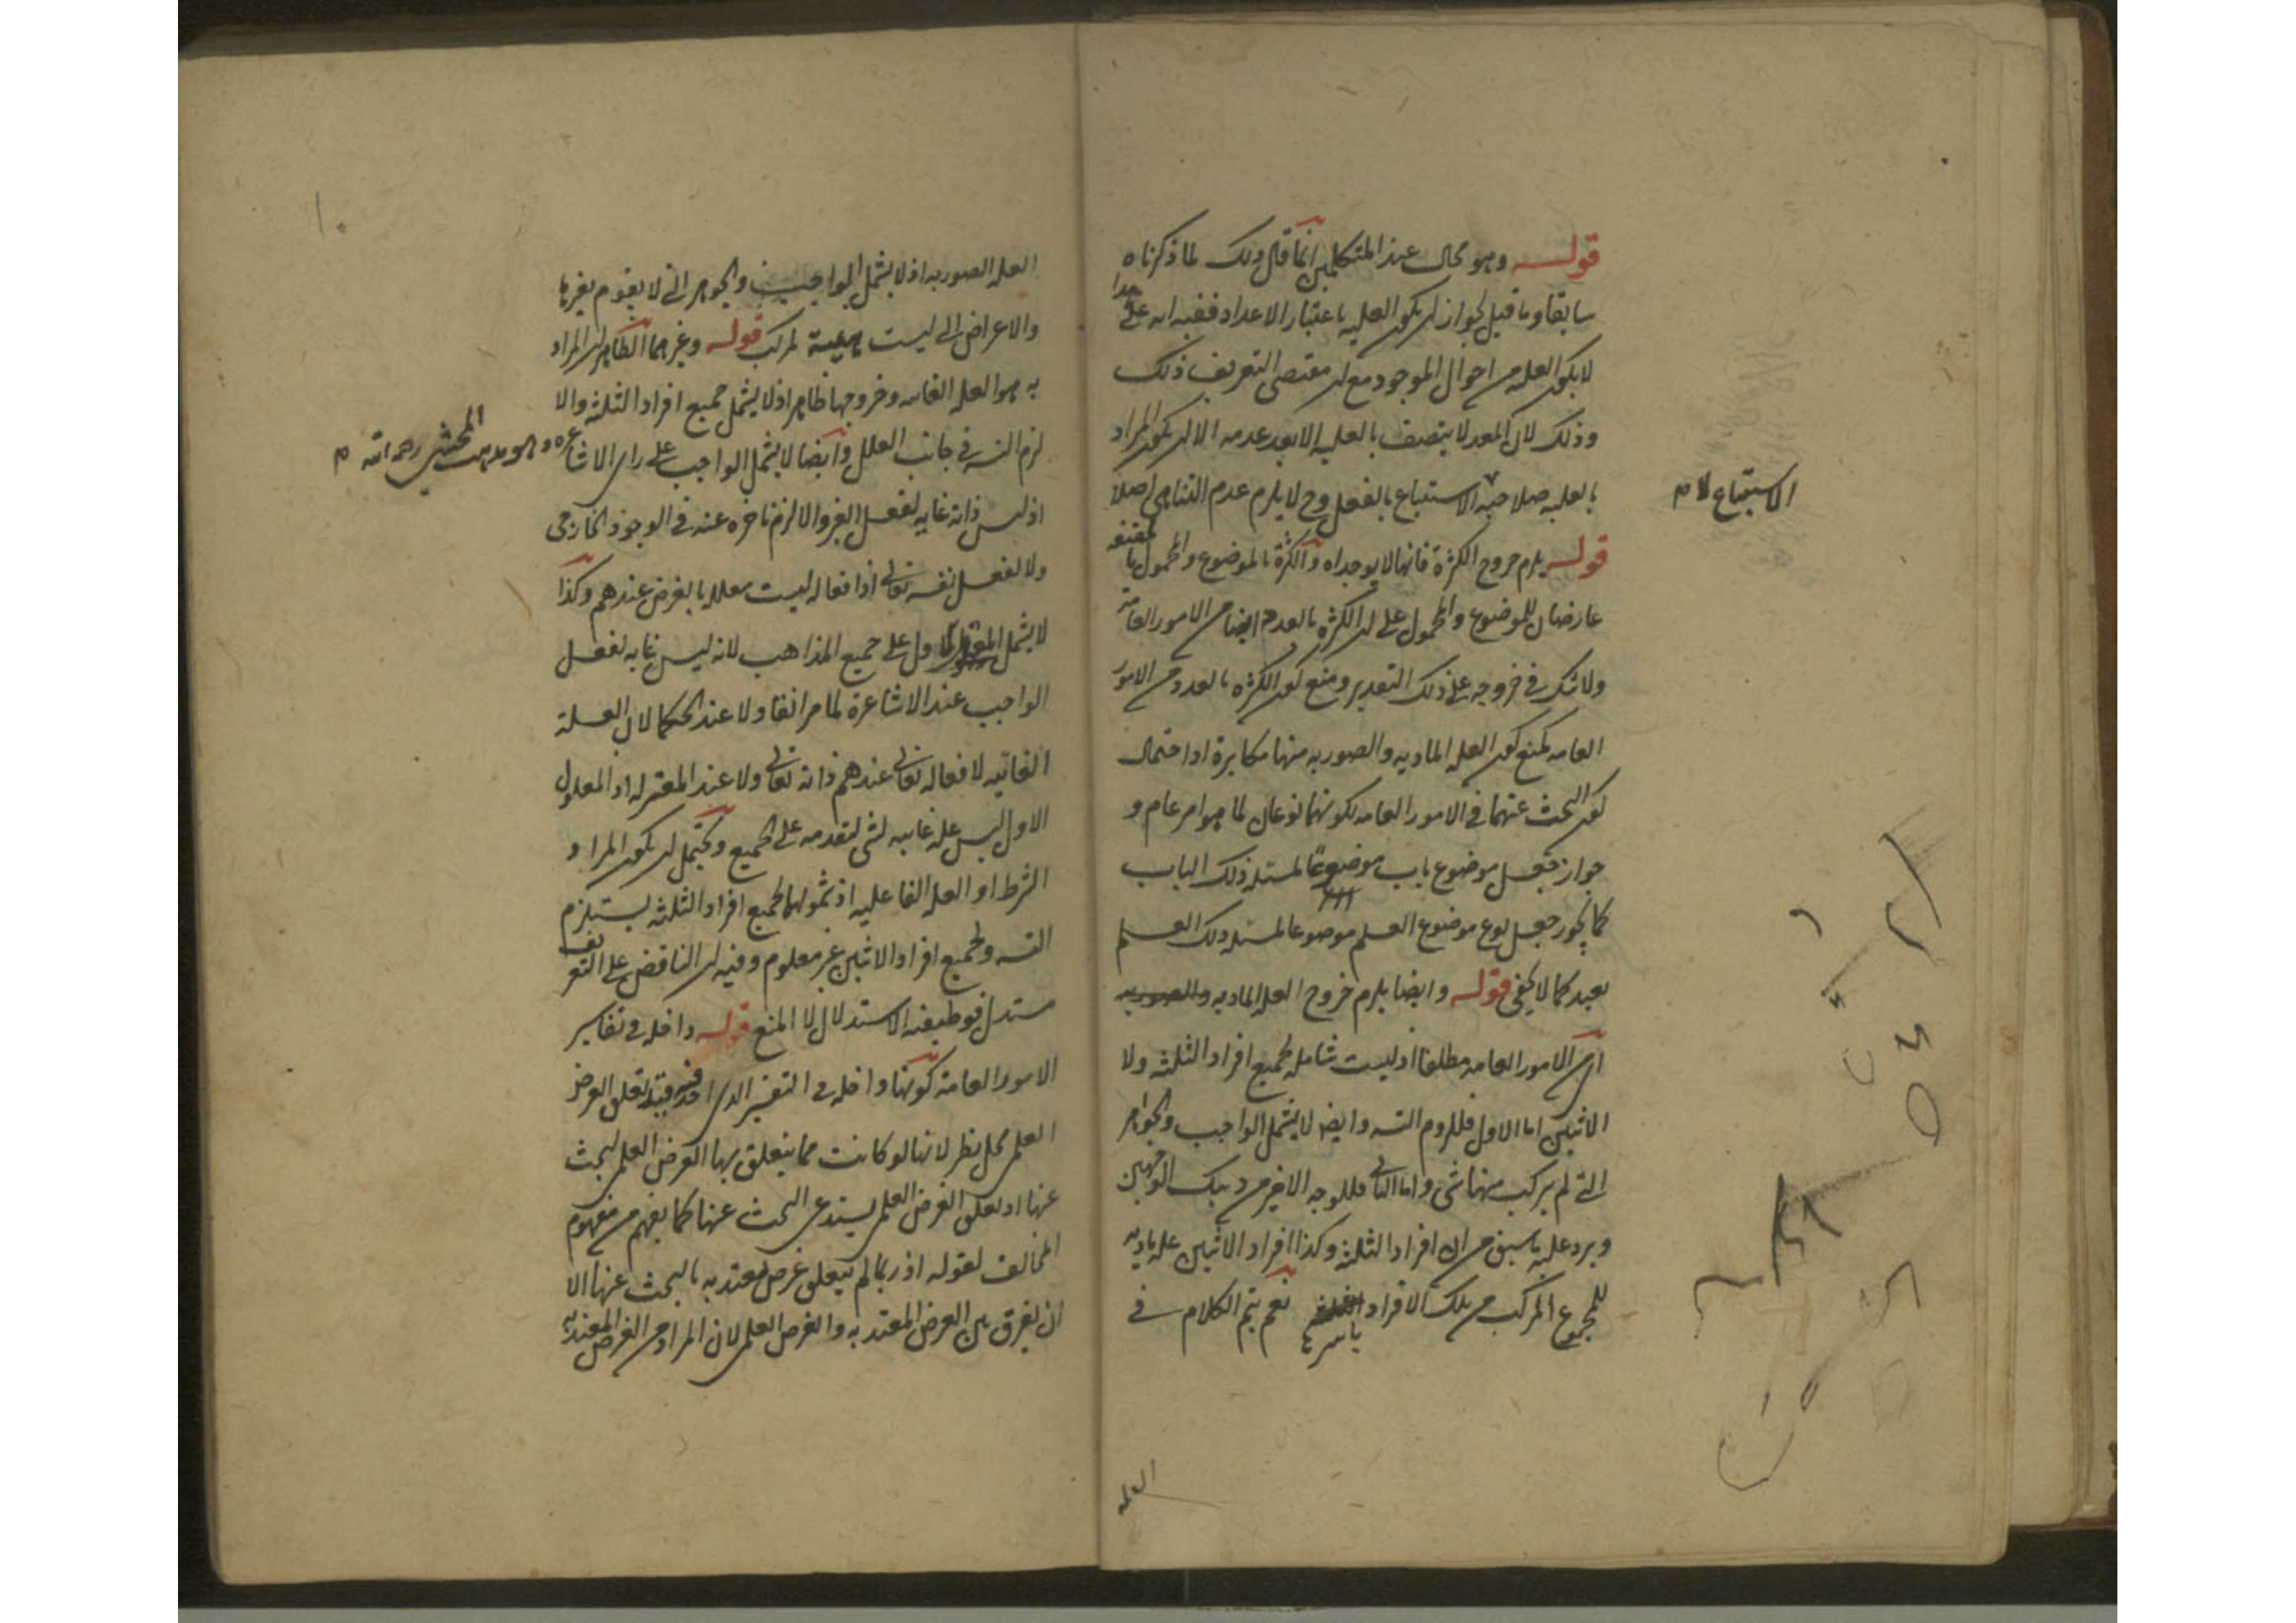 قوله وهو محال عند المتكلمين انما قال ذلك لما ذكرناه
سابقا وما قيل لجواز ان يكون العلية باعتبار الاعداد ففيه انه على هذا
لا يكون العلة من احوال الموجود مع ان مقتضى التعريف ذلك
وذلك لان المعد لا يتصف بالعلية الا بعد عدمه الا ان يكون المراد
بالعلية صلاحية الاستتباع بالفعل وح لا يلزم عدم التناهى اصلا
الاستتباع لا م
قوله يلزم خروج الكثرة فانها لا يوجد اه والكثرة بالموضوع والمحمول
عارضان للموضوع والمحمول على ان الكثرة بالعدد ايضا من الامور العامة
ولا شك فى خروجه على ذلك التقدير ومنع كون الكثرة بالعدد من الامور
العامة كمنع كون العلة المادية والصورية منها مكابرة اذ احتمال
كون البحث عنهما فى الامور العامة لكونهما نوعان لما هو امر عام و
جواز جعل موضوع باب موضوعا لمسئلة ذلك الباب
كما يجوز جعل نوع موضوع العلم موضوعا لمسئلة ذلك العلم
بعيد كما لا يخفى قوله وايضا يلزم خروج العلة المادية والصورية
اى من الامور العامة مطلقا اذ ليست شاملة لجميع افراد الثلثة ولا
الاثنين اما الاول فللزوم التسـ وايضا لا يشمل الواجب والجواهر
التى لم يركب منها شى واما الثانى فللوجه الاخير من ذينك الوجهين
ويرد عليه ما سبق من ان افراد الثلثة وكذا افراد الاثنين علة مادية
للمجموع المركب من تلك الافراد باسرها نعم يتم الكلام فى
العلة
١٠
العلة الصورية اذ لا يشمل الواجب والجواهر التى لا يقوم بغيرها
والاعراض التى ليست لمركب قوله وغيرهما الظاهر ان المراد
به هو العلة الغائية وخروجها ظاهر اذ لا يشمل جميع افراد الثلثة والا
لزم التسـ فى جانب العلل وايضا لا يشمل الواجب على راى الاشاعرة
وهو مذهب المحشى رحمه الله م
اذ ليس ذاته غاية لفعل الغير والا لزم تاخره عنه فى الوجود الخارجى
ولا لفعل نفسه تعالى اذ افعاله ليست معللة بالغرض عندهم وكذا
لا يشمل المعلول الاول على جميع المذاهب لانه ليس غاية لفعل
الواجب عند الاشاعرة لما مر انفا ولا عند الحكما لان العلة
الغائية لافعاله تعالى عندهم ذاته تعالى ولا عند المعتزلة اذ المعلول
الاول ليس علة غايية لشى لتقدمه على الجميع ويحتمل ان يكون المراد
الشرط او العلة الفاعلية اذ شمولهما لجميع افراد الثلثة يستلزم
التسـ ولجميع افراد الاثنين غير معلوم وفيه ان الناقض على التعريف
مستدل فوظيفته الاستدلال لا المنع قوله داخلة فى تفاسير
الامور العامة كونها داخلة فى التفسير الذى اخذ فيه قيد تعلق الغرض
العلمى محل نظر لانها لو كانت مما يتعلق بها الغرض العلمى لبحث
عنها اذ تعلق الغرض العلمى يستدعى البحث عنها كما يفهم من مفهوم
المخالف لقوله اذ ربما لم يتعلق غرض معتد به بالبحث عنها الا
ان يفرق بين الغرض المعتد به والغرض العلمى لان المراد من الغرض المعتد به